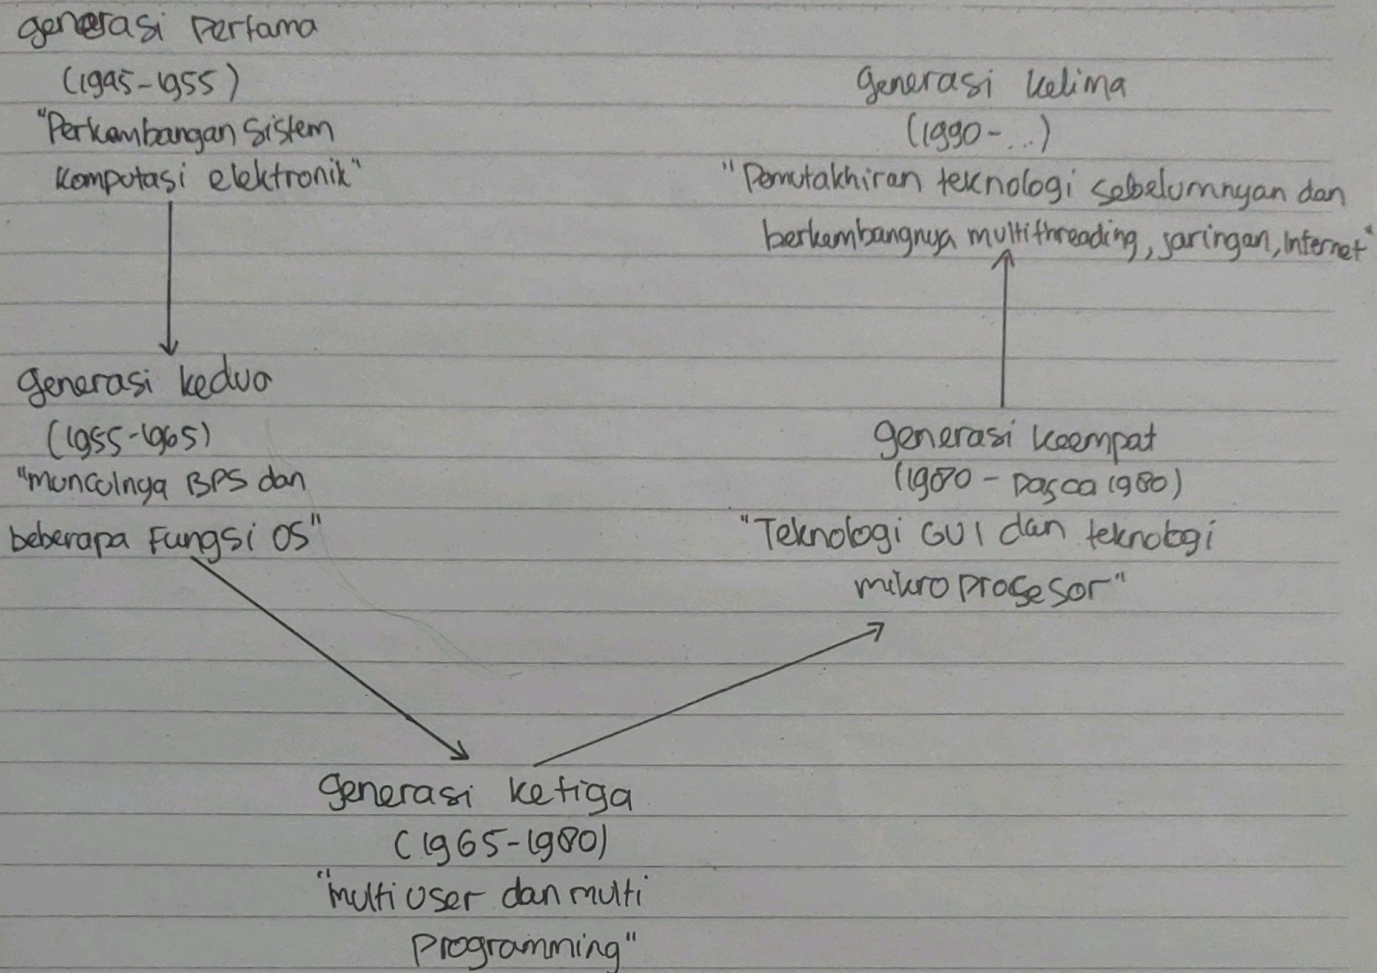 generasi Pertama
(1945-1955)
"Perkembangan Sistem
Komputasi elektronik"
generasi kedua
(1955-1965)
"munculnya BPS dan
beberapa Fungsi OS"
generasi ketiga
(1965-1980)
"multi user dan multi
programming"
generasi keempat
(1980 - Pasca 1980)
"Teknologi GUI dan teknologi
mikro prosesor"
generasi kelima
(1990-...)
"Pemutakhiran teknologi sebelumnyan dan
berkembangnya multithreading, jaringan, Internet"